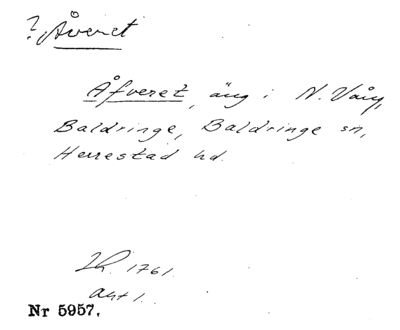 ? Åveret
Åfveret, äng i N. Vång,
Baldringe, Baldringe sn,
Herrestad hd.
LR. 1761.
akt 1.
Nr 5957.